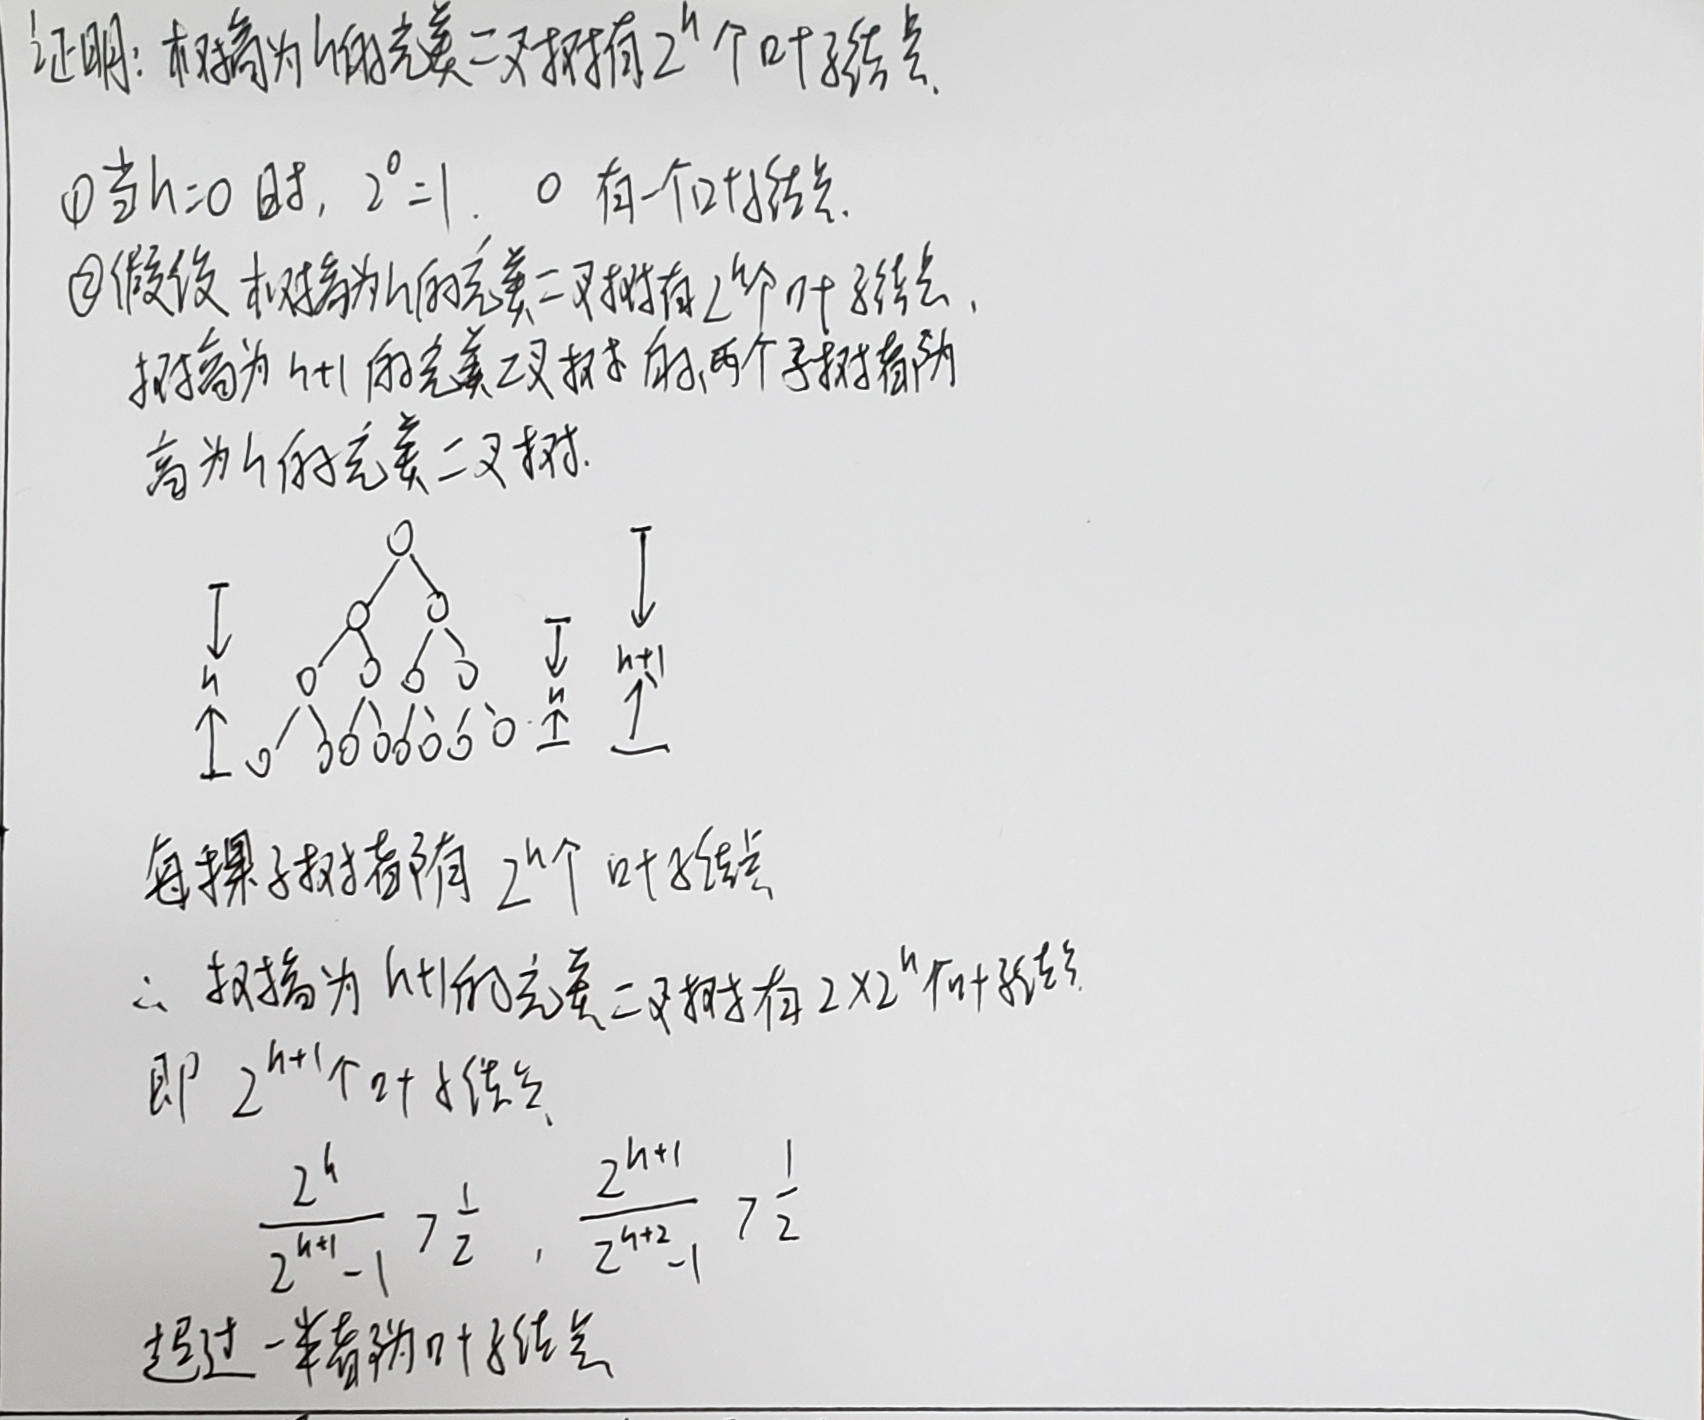 证明：树高为h的完美二叉树有2^h个叶子结点.
①当h=0时，2^0=1. 0 有一个叶子结点.
②假设 树高为h的完美二叉树有2^h个叶子结点，
树高为h+1的完美二叉树的两个子树都为
高为h的完美二叉树.
h h h+1
每棵子树都有 2^h个 叶子结点
∴ 树高为h+1的完美二叉树有2×2^h个叶子结点
即 2^{h+1}个叶子结点
2^h/(2^{h+1}-1) > 1/2 , 2^{h+1}/(2^{h+2}-1) > 1/2
超过一半都为叶子结点